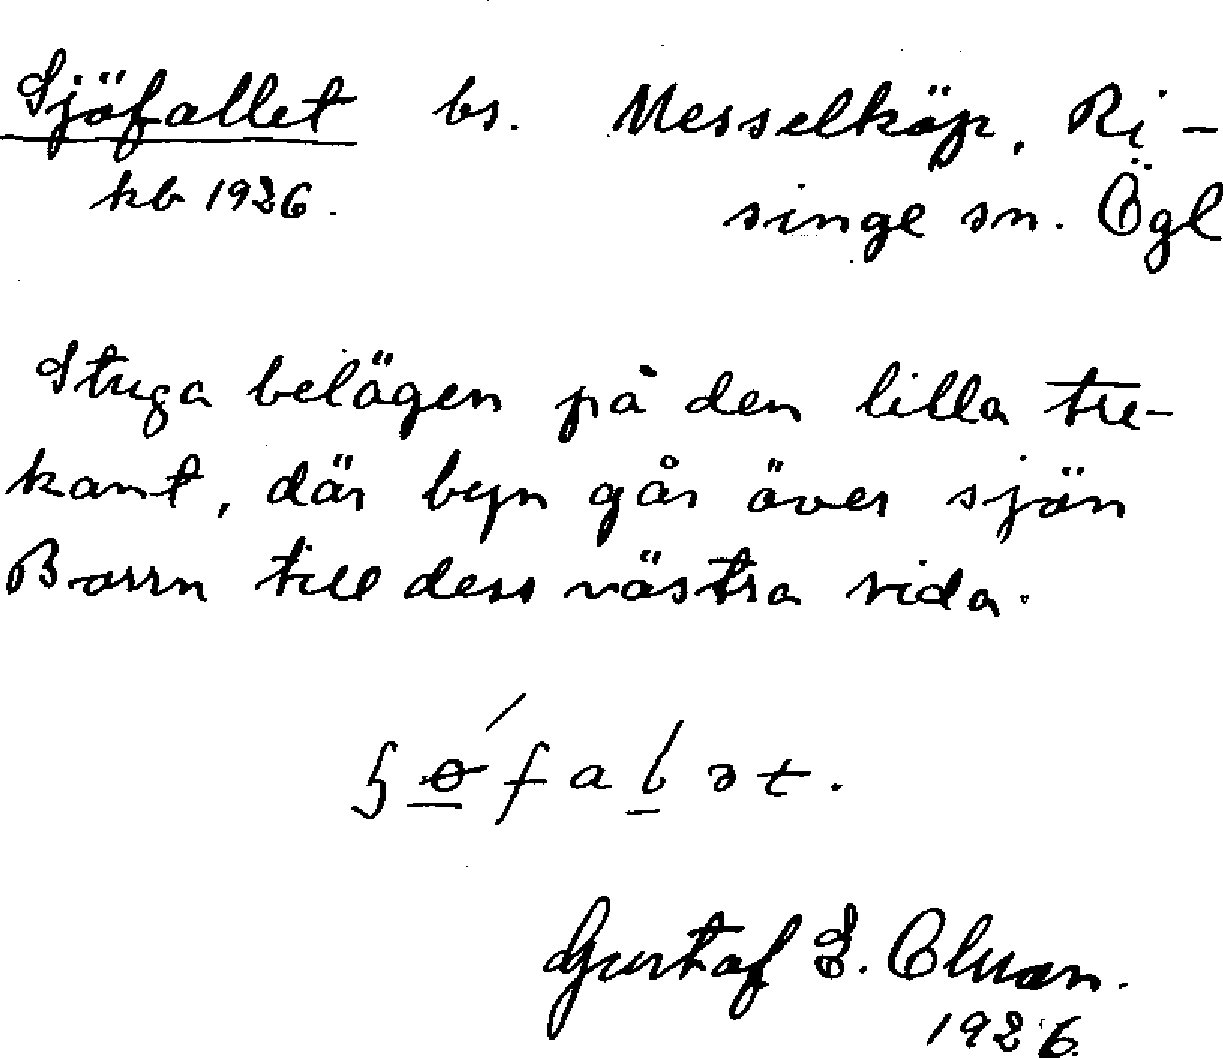 Sjöfallet bs. Messelköp, Ri-
kb 1926. singe sn. Ögl
Stuga belägen på den lilla tre-
kant, där byn går över sjön
Borrn till dess västra sida.
Gustaf S.
1926